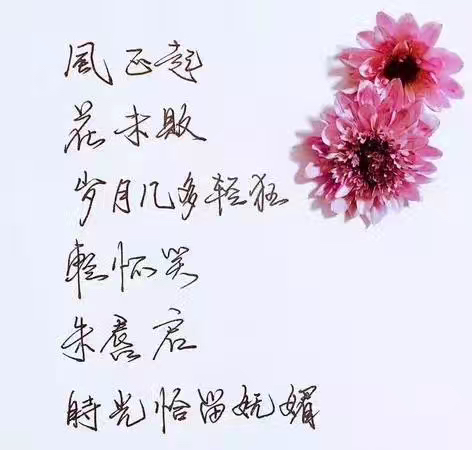 風正起
花未敗
岁月几多轻狂
輕怀笑
朱唇启
時光恰留妩媚